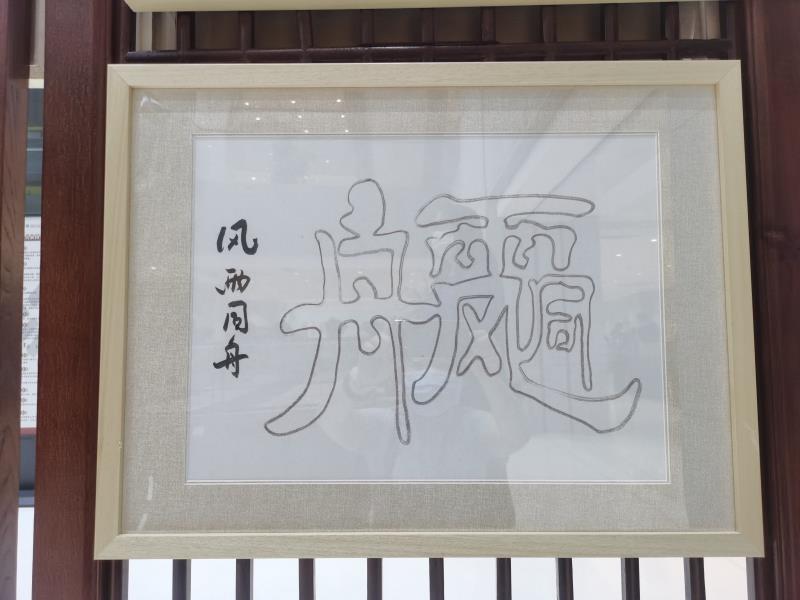 风雨同舟